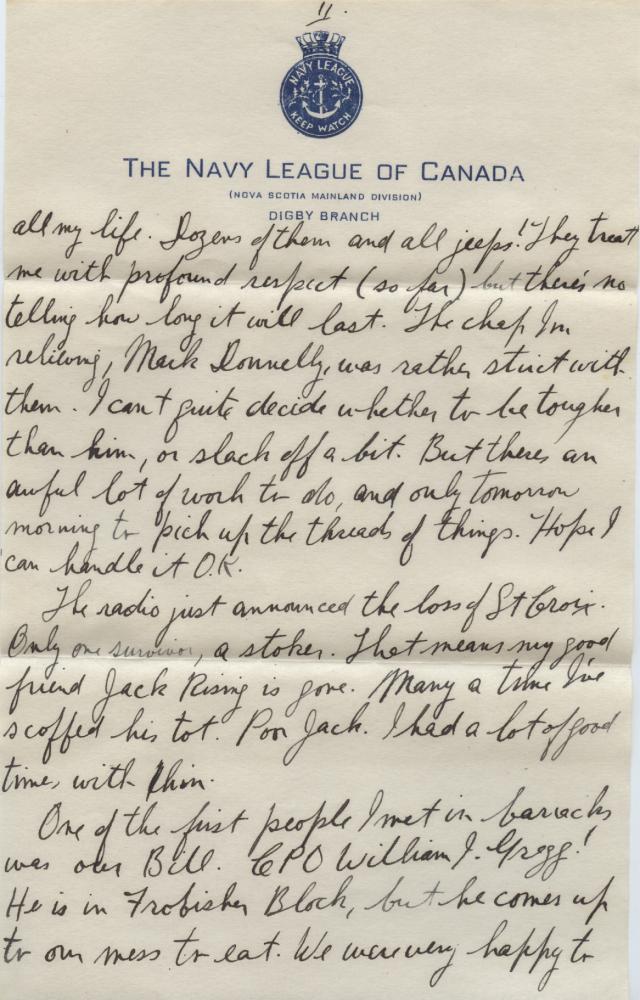 11.
NAVY LEAGUE
KEEP WATCH
THE NAVY LEAGUE OF CANADA
(NOVA SCOTIA MAINLAND DIVISION)
DIGBY BRANCH
all my life. Dozens of them and all jeeps! They treat
me with profound respect (so far) but there's no
telling how long it will last. The chap I'm
relieving, Mark Donnelly, was rather strict with
them. I can't quite decide whether to be tougher
than him, or slack off a bit. But theres an
awful lot of work to do, and only tomorrow
morning to pick up the threads of things. Hope I
can handle it O.K.
The radio just announced the loss of St Croix.
Only one survivor, a stoker. That means my good
friend Jack Rising is gone. Many a time I've
scoffed his tot. Poor Jack. I had a lot of good
times with him.
One of the first people I met in barracks
was our Bill. CPO William J. Gregg!
He is in Frobisher Block, but he comes up
to our mess to eat. We were very happy to